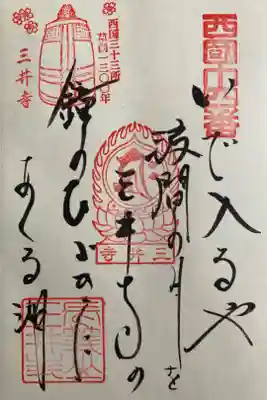 西国十四番
いで入るや
波間の月を
三井寺の
鐘のひびきに
あくる湖
西国三十三所
草創一三〇〇年
三井寺
三井寺